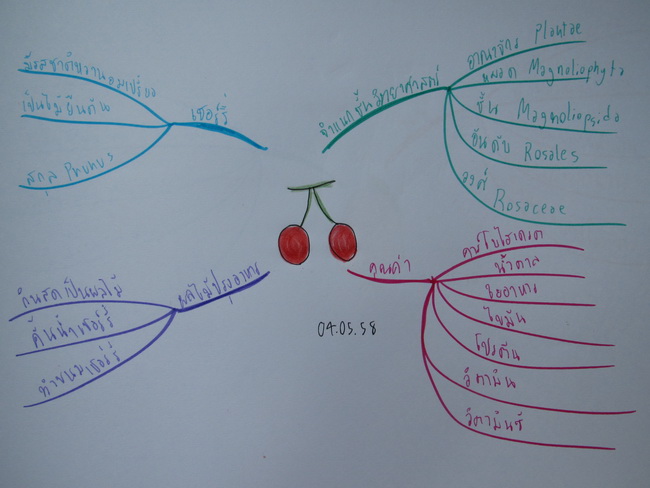 มีรสชาติหวานอมเปรี้ยว
เป็นไม้ยืนต้น
สกุล Prunus
เชอร์รี่
จำแนกชั้นวิทยาศาสตร์
อาณาจักร Plantae
หมวด Magnoliophyta
ชั้น Magnoliopsida
อันดับ Rosales
วงศ์ Rosaceae
กินสดเป็นผลไม้
คั้นน้ำเชอร์รี่
ทำขนมเชอร์รี่
ผลไม้ปรุงอาหาร
คุณค่า
คาร์โบไฮเดรต
น้ำตาล
ใยอาหาร
ไขมัน
โปรตีน
วิตามิน
วิตามินซี
04.05.58